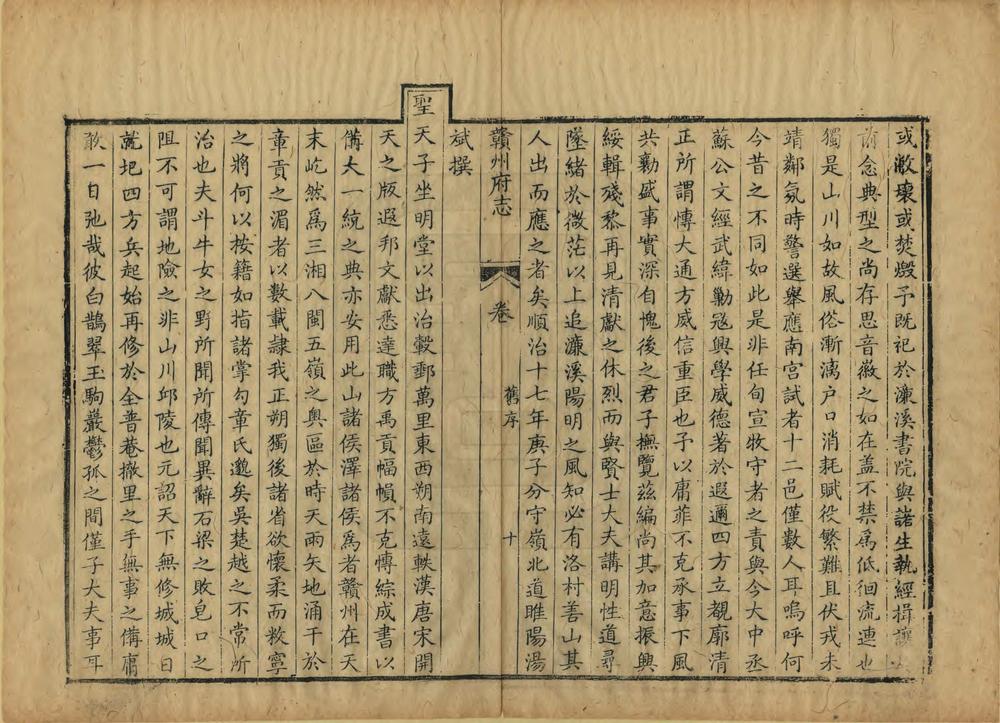 或敝壞或焚燬予既祀於濂溪書院與諸生執經揖讓
前念典型之尚存思音徽之如在蓋不禁為低徊流連也
獨是山川如故風俗漸漓户口消耗賦役繁難且伏戎未
靖鄰氛時警選舉應南宫試者十二邑僅數人耳嗚呼何
今昔之不同如此是非任旬宣牧守者之責與今大中丞
蘇公文經武緯勦寇興學威德著於遐邇四方立覩廓清
正所謂博大通方威信重臣也予以庸菲不克承事下風
共勷盛事實深自愧後之君子撫覽茲編尚其加意振興
綏輯殘黎再見清獻之休烈而與賢士大夫講明性道尋
墜緒於微茫以上追濂溪陽明之風知必有洛村善山其
人出而應之者矣順治十七年庚子分守嶺北道睢陽湯
贛州府志 卷 舊序 十
斌撰
聖天子坐明堂以出治轂郵萬里東西朔南遠軼漢唐宋開
天之版遐邦文獻悉達職方禹貢幅幀不克博綜成書以
備大一統之典亦安用此山諸侯澤諸侯為者贛州在天
末屹然為三湘八閩五嶺之奥區於時天雨矢地涌干於
章貢之湄者以數載隸我正朔獨後諸省欲懷柔而敉寧
之將何以按籍如指諸掌勾章氏邈矣吳楚越之不常所
治也夫斗牛女之野所聞所傳聞異辭石梁之敗皂口之
阻不可謂地險之非山川邱陵也元詔天下無修城城日
就圯四方兵起始再修於全普菴撤里之手無事之備庸
敢一日弛哉彼白鵲翠玉駒巖鬱孤之間僅子大夫事耳